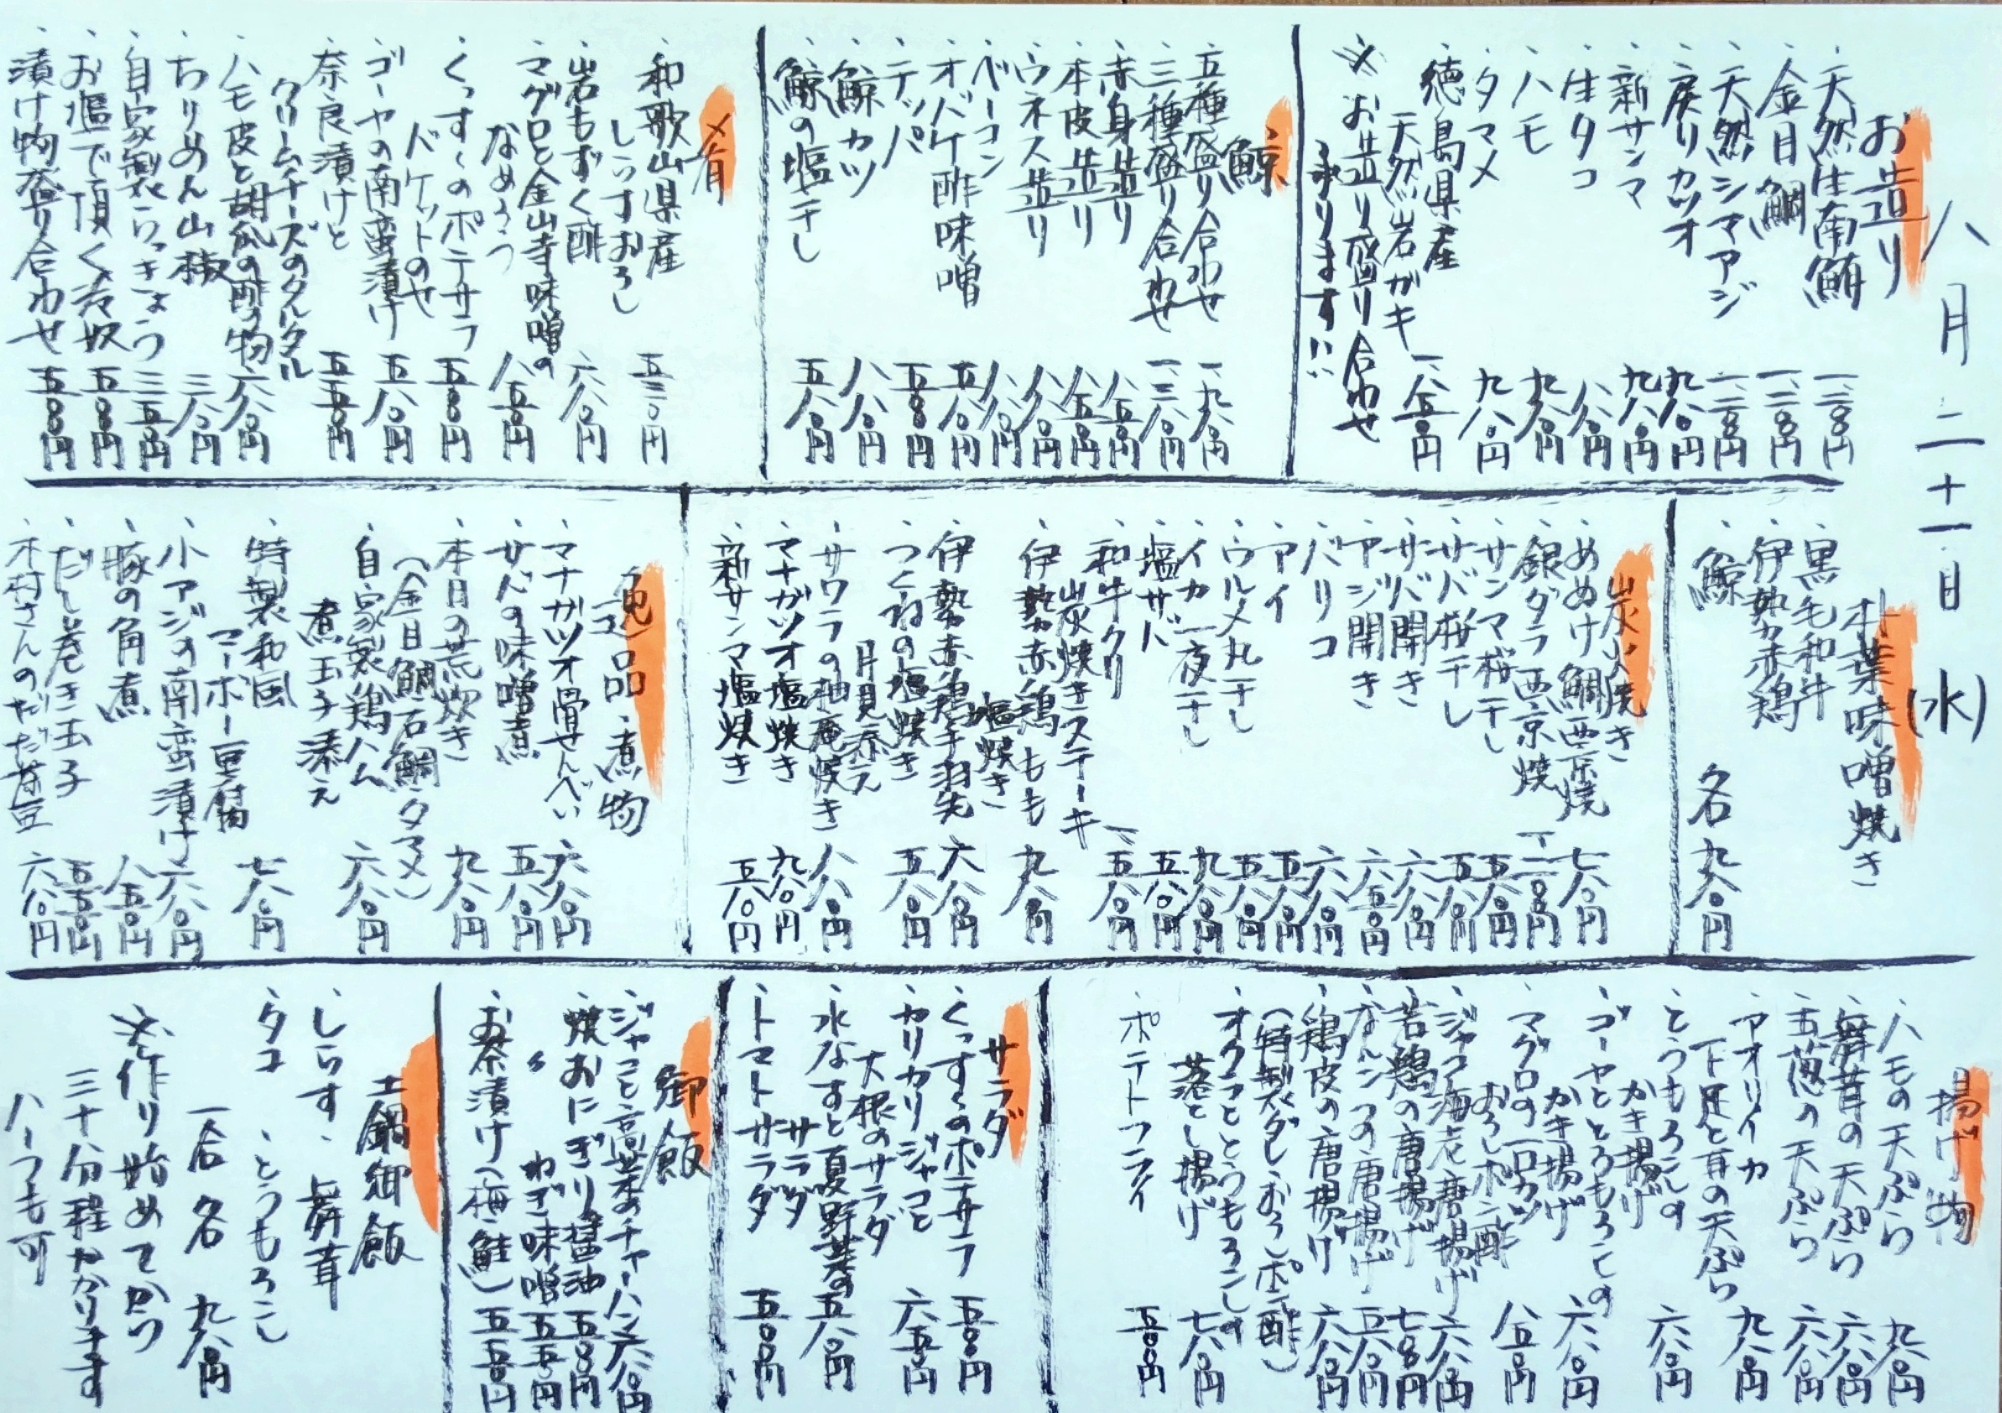 八月二十一日(水)
お造り
、天然生南鮪 一、二八〇円
、金目鯛 一、二八〇円
、天然シマアジ 一、二八〇円
、戻りカツオ 九八〇円
、新サンマ 九八〇円
、生タコ 八八〇円
、ハモ 九八〇円
、タマメ 九八〇円
、徳島県産
天然岩ガキ 一、八五〇円
※お造り盛り合わせ
承ります!!
鯨
、五種盛り合わせ 一、九八〇円
、三種盛り合わせ 一、三八〇円
、赤身造り 八五〇円
、本皮造り 八五〇円
、ウネス造り 八八〇円
、ベーコン 八八〇円
、オバケ酢味噌 五八〇円
、テッパ 五八〇円
、鯨カツ 八八〇円
、鯨の塩干し 五八〇円
肴
、和歌山県産
しらすおろし 五三〇円
、岩もずく酢 六八〇円
、マグロと金山寺味噌の
なめろう 八五〇円
、くっすぅのポテサラ
バケットのせ 五八〇円
、ゴーヤの南蛮漬け 五八〇円
、奈良漬けと
クリームチーズのタルタル 五五〇円
、ハモ皮と胡瓜の酢の物 六八〇円
、ちりめん山椒 三八〇円
、自家製らっきょう 三五〇円
、お塩で頂く冷奴 五八〇円
、漬け物盛り合わせ 五八〇円
朴葉味噌焼き
、黒毛和牛
、伊勢赤鶏
、鯨 各九八〇円
炭火焼き
、めぬけ鯛西京焼 七八〇円
、銀ダラ西京焼 一、二八〇円
、サンマ桜干し 五八〇円
、サバ桜干し 五八〇円
、サバ開き 六八〇円
、アジ開き 六五〇円
、バリコ 六八〇円
、アイ 五八〇円
、ウルメ丸干し 五八〇円
、イカ一夜干し 九八〇円
、塩サバ 五八〇円
、和牛クリ
炭焼きステーキ 一、五八〇円
、伊勢赤鶏もも
塩焼き 九八〇円
、伊勢赤鶏手羽先 六八〇円
、つくねの塩焼き
月見添え 五八〇円
、サワラの柚庵焼き 八八〇円
、マナガツオ塩焼き 九八〇円
、新サンマ塩焼き 五八〇円
逸品・煮物
、マナガツオ骨せんべい 六八〇円
、サバの味噌煮 五八〇円
、本日の荒炊き 九八〇円
(金目鯛・石鯛・タマメ)
、自家製鶏ハム
煮玉子添え 六八〇円
、特製和風
マーボー豆腐 七八〇円
、小アジの南蛮漬け 六八〇円
、豚の角煮 八五〇円
、だし巻き玉子 五五〇円
、木村さんのだだ茶豆 六八〇円
揚げ物
、ハモの天ぷら 九八〇円
、舞茸の天ぷら 六八〇円
、玉葱の天ぷら 六八〇円
、アオリイカ
下足と耳の天ぷら 九八〇円
、とうもろこしの
かき揚げ 六八〇円
、ゴーヤととろもろこしの
かき揚げ 六八〇円
、マグロの一口カツ
おろしポン酢 八五〇円
、ジャコ海老唐揚げ 六八〇円
、若鶏の唐揚げ 七八〇円
、なんこつの唐揚げ 五六〇円
、鶏皮の唐揚げ 六八〇円
(特製ダレ・おろしポン酢)
、オクラととうもろこしの
落とし揚げ 七八〇円
、ポテトフライ 五〇〇円
サラダ
、くっすぅのポテサラ 五八〇円
、カリカリジャコと
大根のサラダ 六五〇円
、水なすと夏野菜の
サラダ 五八〇円
、トマトサラダ 五〇〇円
御飯
、ジャコと高菜のチャーハン 六八〇円
、焼おにぎり醤油 五〇〇円
、〃 ねぎ味噌 五五〇円
、お茶漬け(梅・鮭) 五五〇円
土鍋御飯
、しらす、舞茸
、タコ とうもろこし
一合 各九八〇円
※作り始めてから
三十分程かかります
ハーフも可